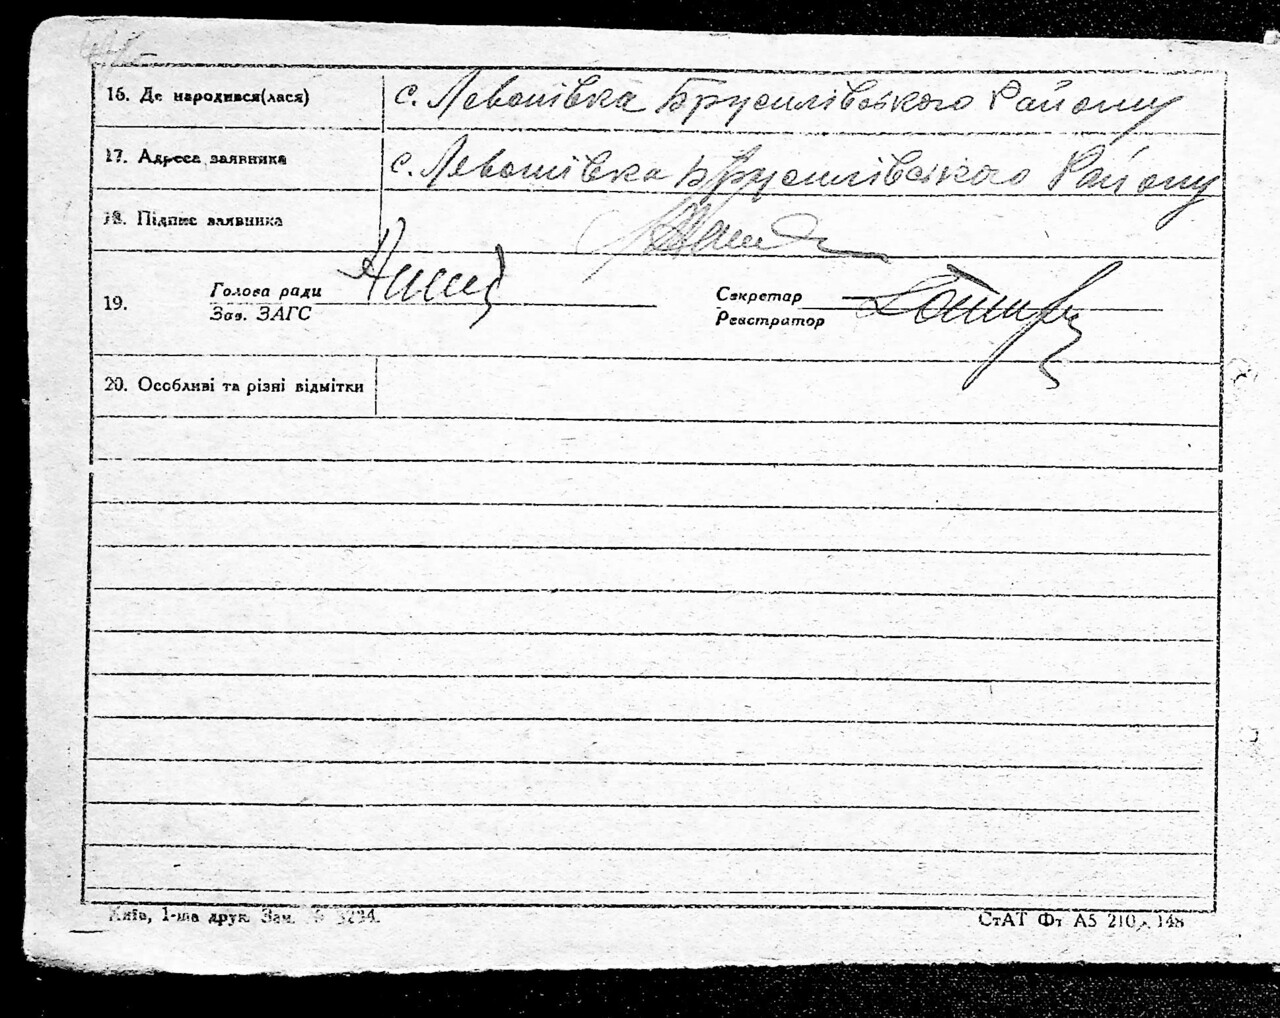 16. Де народився(лася) с. Левонівка Брусилівського Району
17. Адреса заявника с. Левонівка Брусилівського Району
18. Підпис заявника
19. Голова ради
Зав. ЗАГС
Секретар
Реєстратор
20. Особливі та різні відмітки
Київ, 1-ша друк. Зам. № 3234.
СтАТ Фт А5 210 × 148